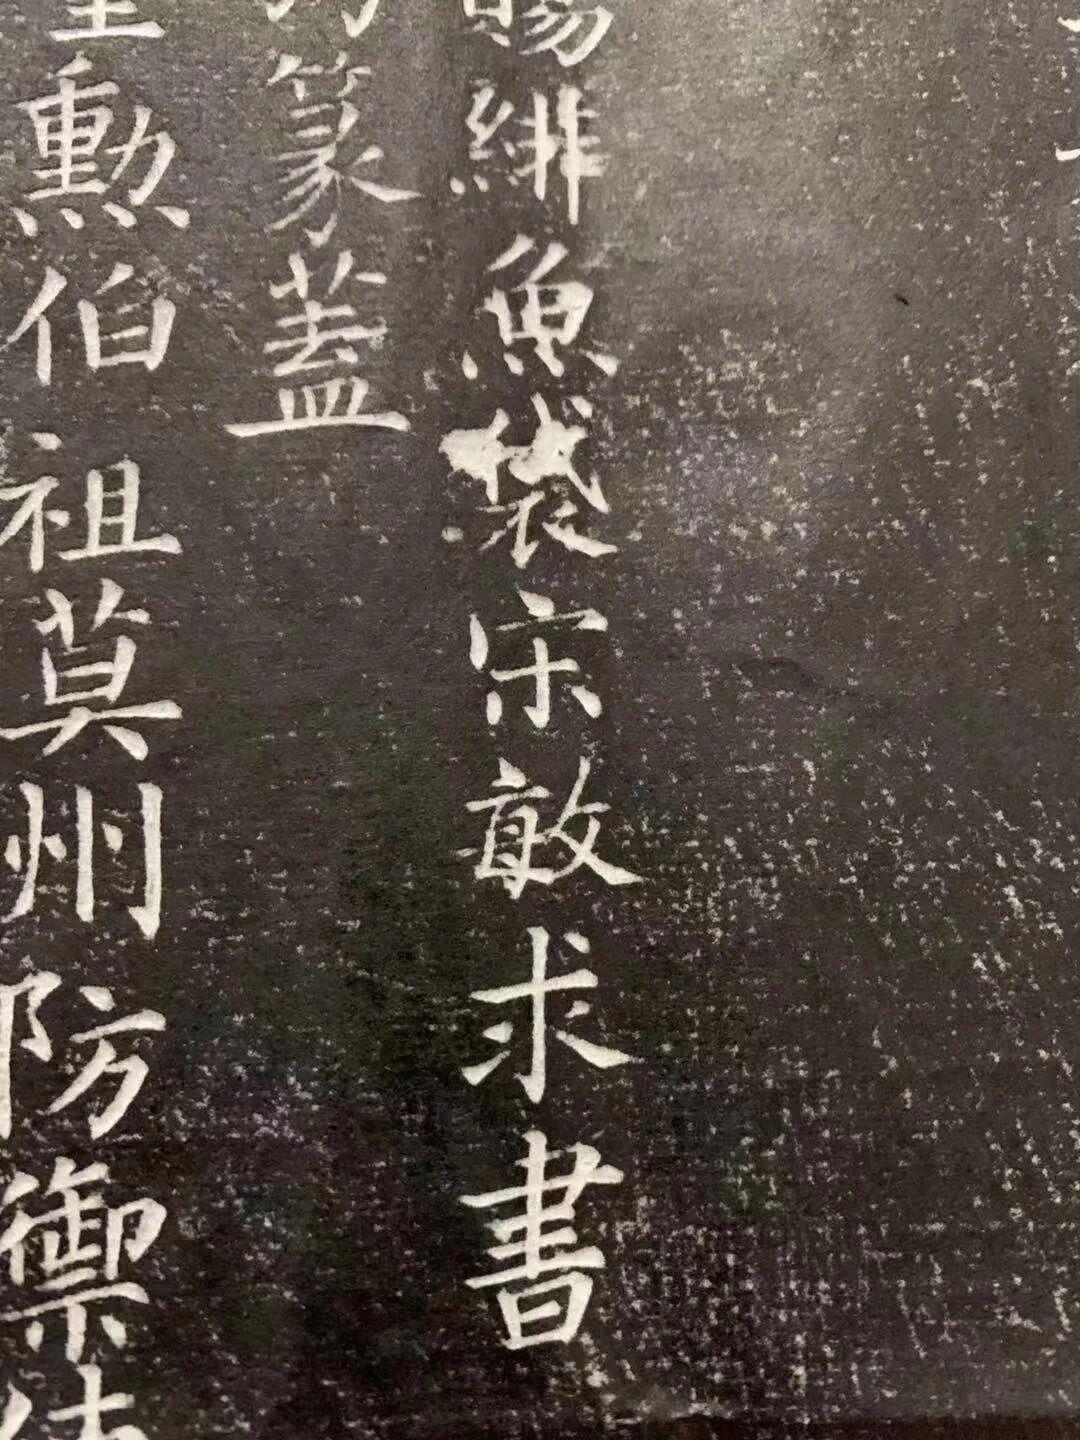 賜緋魚袋宋敏求書
篆蓋
勲伯祖莫州防禦使